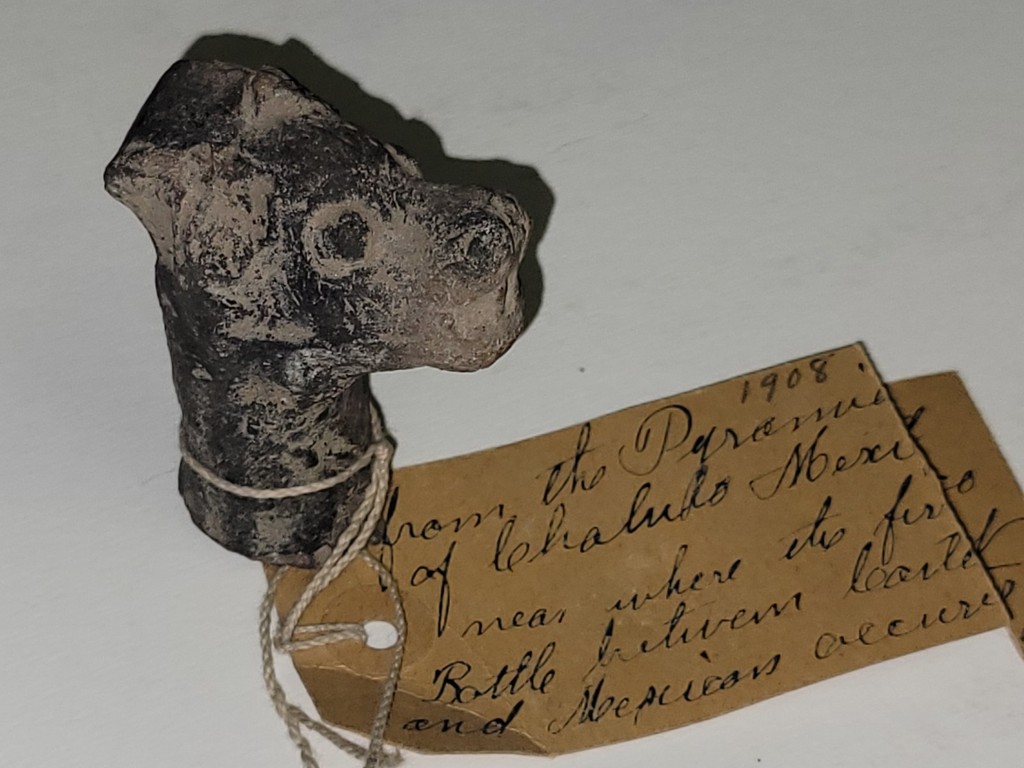 1908.
from the Pyramid
of Chalulo Mexico
near where the first
Battle between Cortez
and Mexicans occured